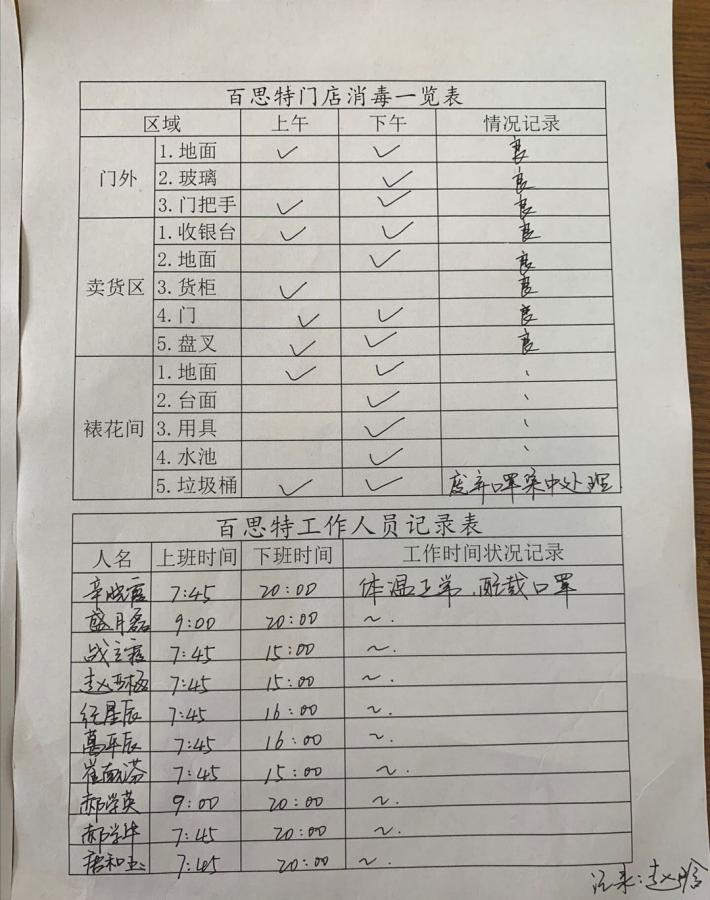 百思特门店消毒一览表
区域 上午 下午 情况记录
门外 1.地面 ✓ ✓ 良
2.玻璃 ✓ 良
3.门把手 ✓ ✓ 良
卖货区 1.收银台 ✓ ✓ 良
2.地面 ✓ 良
3.货柜 ✓ 良
4.门 ✓ ✓ 良
5.盘叉 ✓ ✓ 良
裱花间 1.地面 ✓ ✓ 、
2.台面 ✓ 、
3.用具 ✓ 、
4.水池 ✓ 、
5.垃圾桶 ✓ ✓ 废弃口罩集中处理
百思特工作人员记录表
人名 上班时间 下班时间 工作时间状况记录
辛晓霞 7:45 20:00 体温正常、配戴口罩
盛月磊 9:00 20:00 ~.
战 7:45 15:00 ~.
赵 7:45 15:00 ~.
星辰 7:45 16:00 ~.
萬年辰 7:45 16:00 ~.
崔 7:45 15:00 ~.
郝学英 9:00 20:00 ~.
郝学华 7:45 20:00 ~.
7:45 20:00 ~.
记录:赵晗